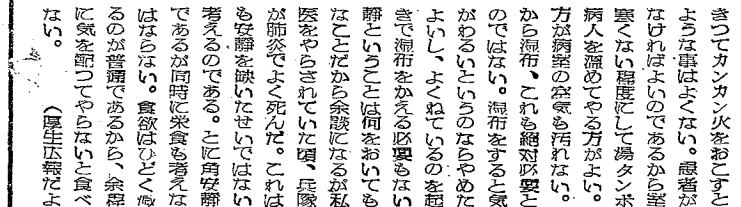 きつてカンカン火をおこすと
ような事はよくない。患者が
なければよいのであるから室
寒くない程度にして湯タンポ
病人を温めてやる方がよい。
方が病室の空気も汚れない。
から湿布、これも絶対必要と
のではない。湿布をすると気
がわるいというのならやめた
よいし、よくねているのを起
きで湿布をかえる必要もない
静ということは何をおいても
なことだから余談になるが私
医をやらされていた頃、兵隊
が肺炎でよく死んだ。これは
も安静を欠いたせいではない
考えるのである。とに角安静
であるが同時に栄食も考えな
はならない。食欲はひどく減
るのが普通であるから、余程
に気を配つてやらないと食べ
ない。 (厚生広報だよ